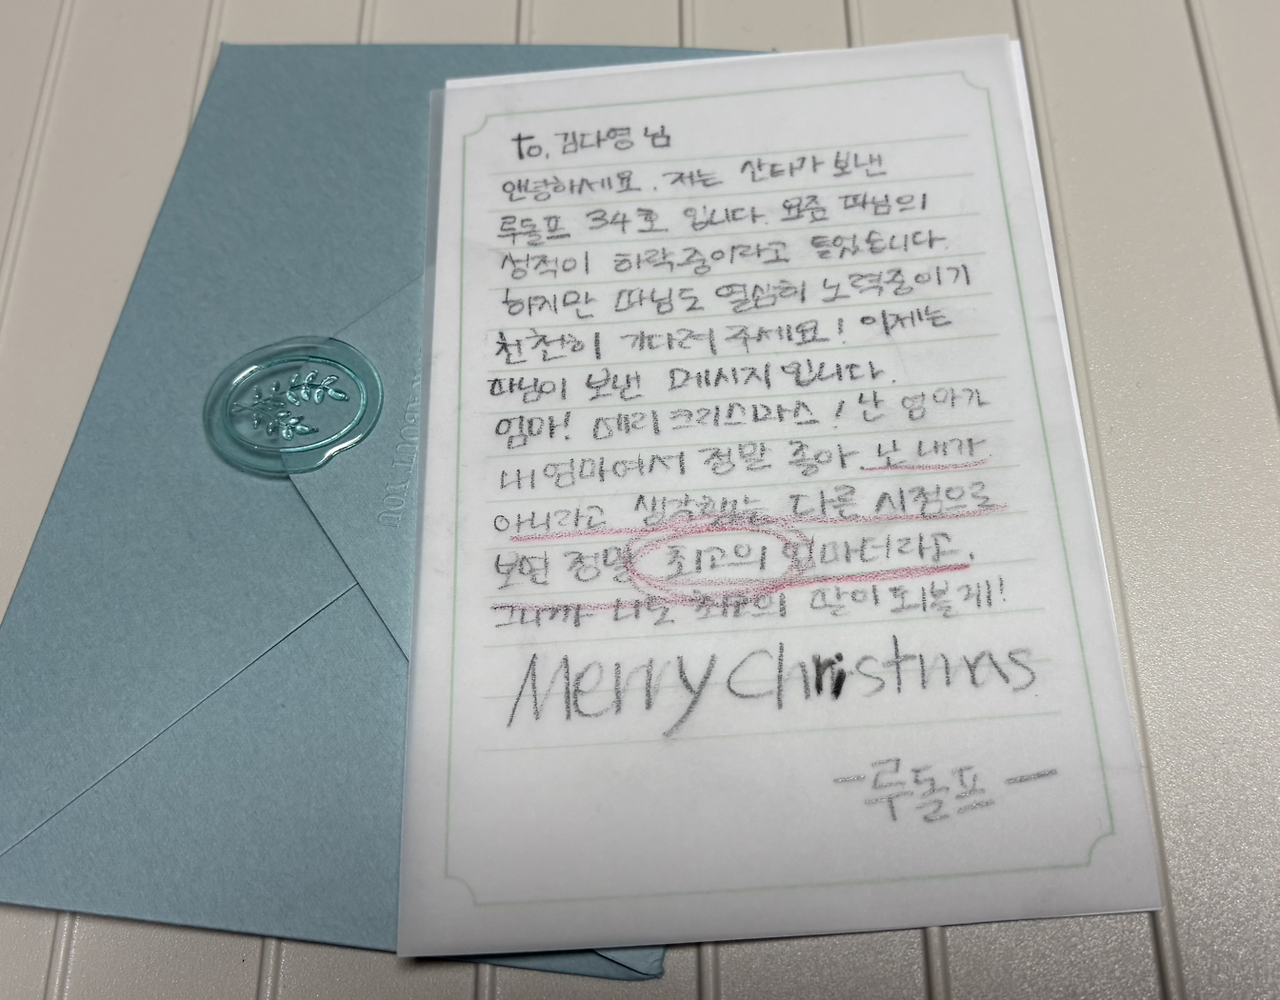 to. 김다영 님
안녕하세요. 저는 산타가 보낸
루돌프 34호 입니다. 요즘 따님의
성적이 하락중이라고 들었습니다.
하지만 따님도 열심히 노력중이기
천천히 기다려 주세요! 이제는
따님이 보낸 메시지 입니다.
엄마! 메리 크리스마스! 난 엄마가
내 엄마여서 정말 좋아. 난 내가
아니라고 생각했는 다른 시점으로
보면 정말 최고의 엄마더라고.
그니까 나도 최고의 딸이 되볼게!
Merry Christmas
-루돌프-